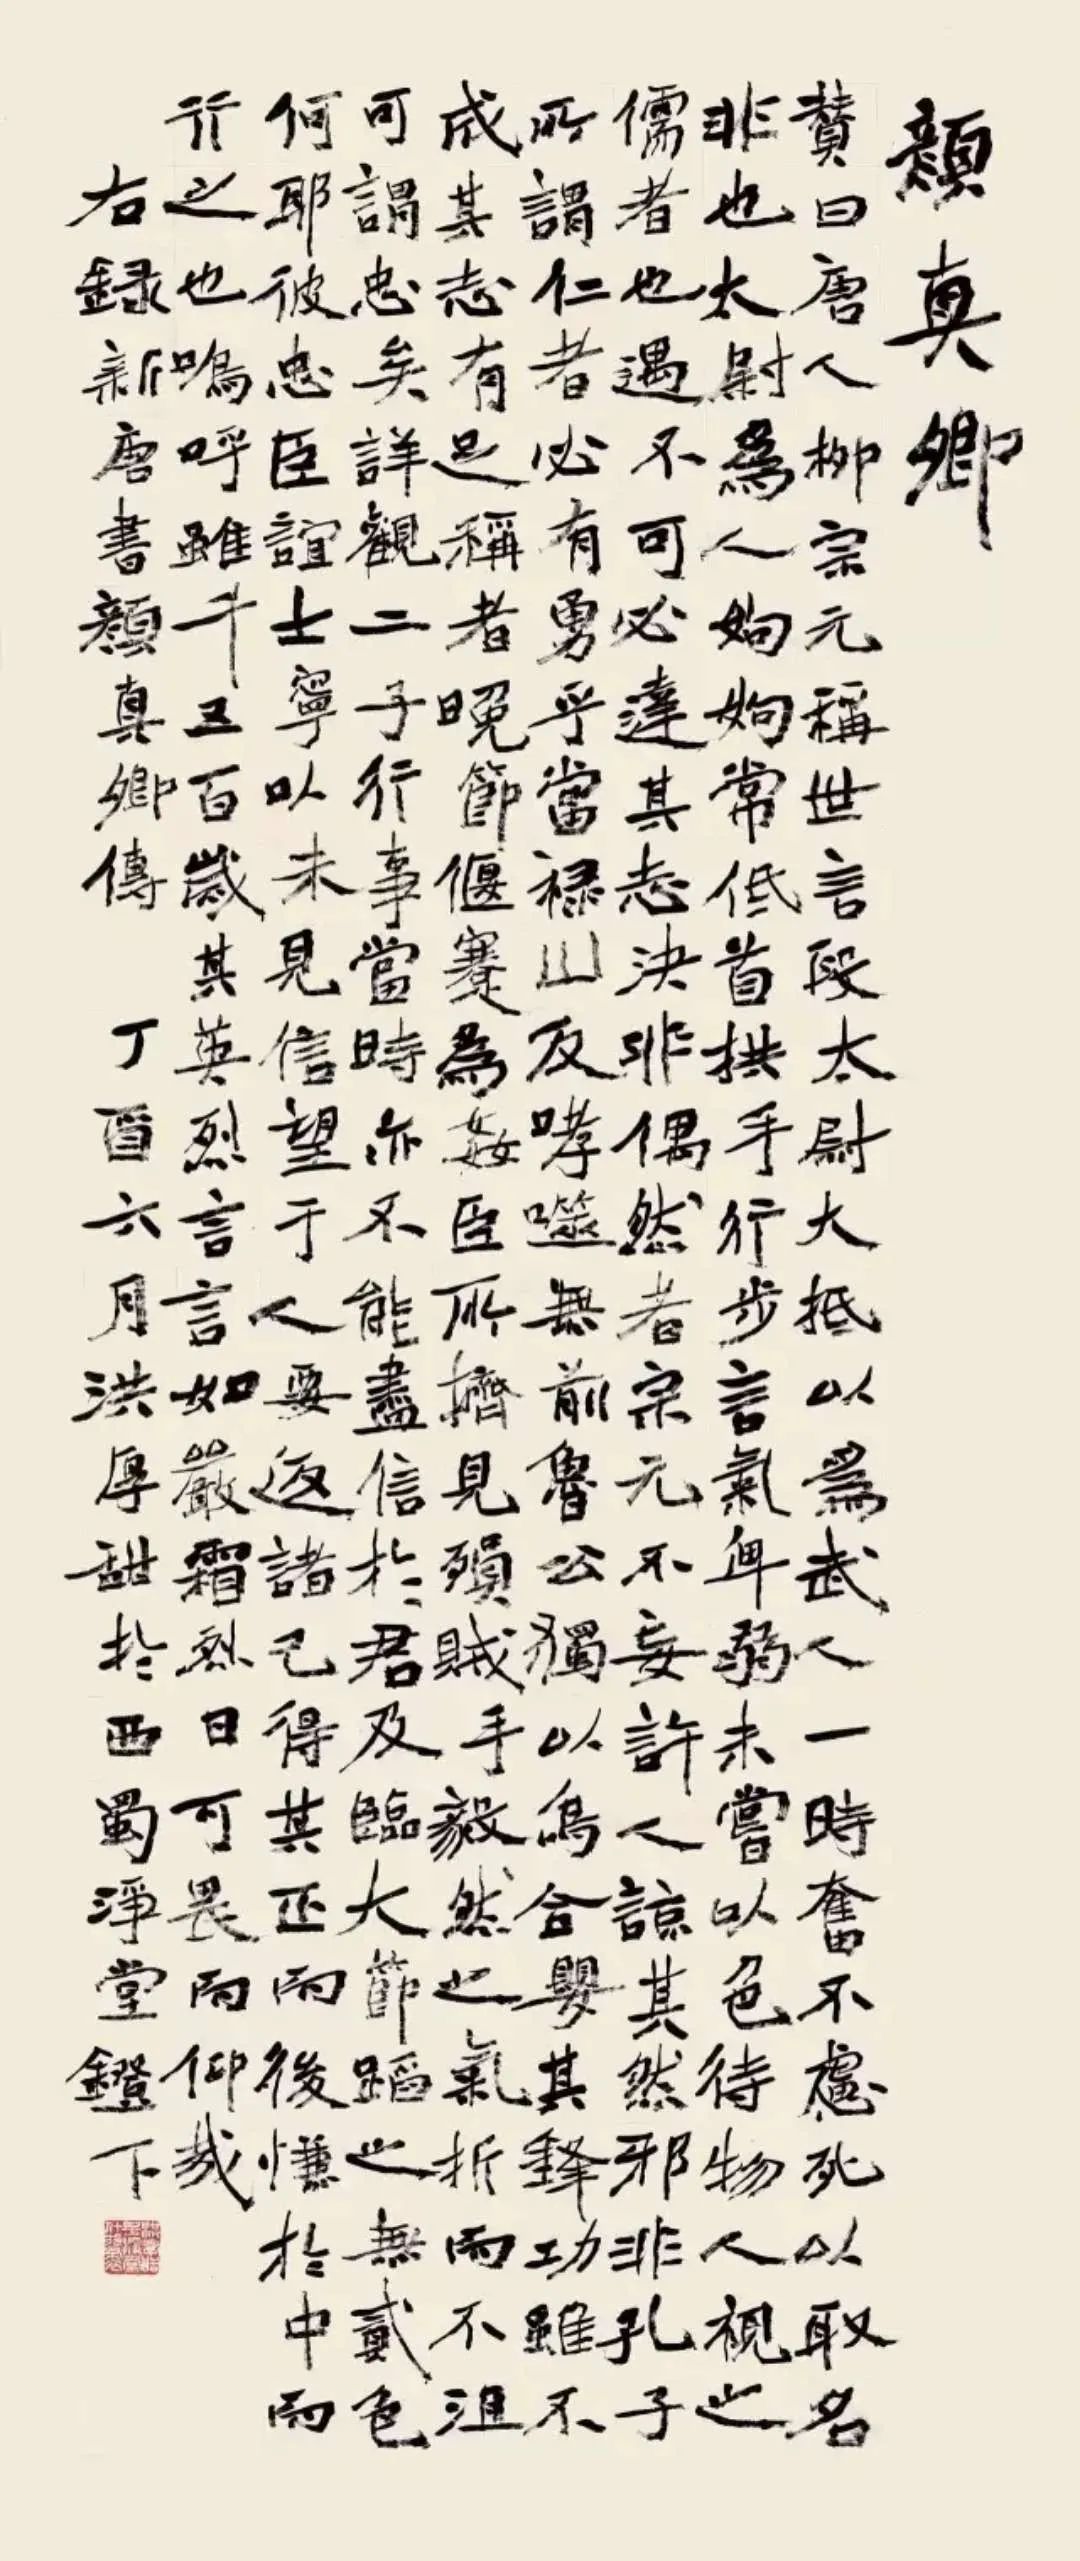 顏真卿
贊曰唐人柳宗元稱世言段太尉大抵以為武人一時奮不慮死以取名
非也太尉為人姁姁常低首拱手行步言氣卑弱未嘗以色待物人視之
儒者也遇不可必達其志決非偶然者宗元不妄許人諒其然邪非孔子
所謂仁者必有勇乎當祿山反哮噬無前魯公獨以烏合嬰其鋒功雖不
成其志有足稱者晚節偃蹇為姦臣所擠見殞賊手毅然之氣折而不沮
可謂忠矣詳觀二子行事當時亦不能盡信於君及臨大節蹈之無貳色
何耶彼忠臣誼士寧以未見信望于人要返諸己得其正而後慊於中而
行之也嗚呼雖千五百歲其英烈言言如嚴霜烈日可畏而仰哉
右録新唐書顏真卿傳 丁酉六月洪厚甜於西蜀淨堂鐙下